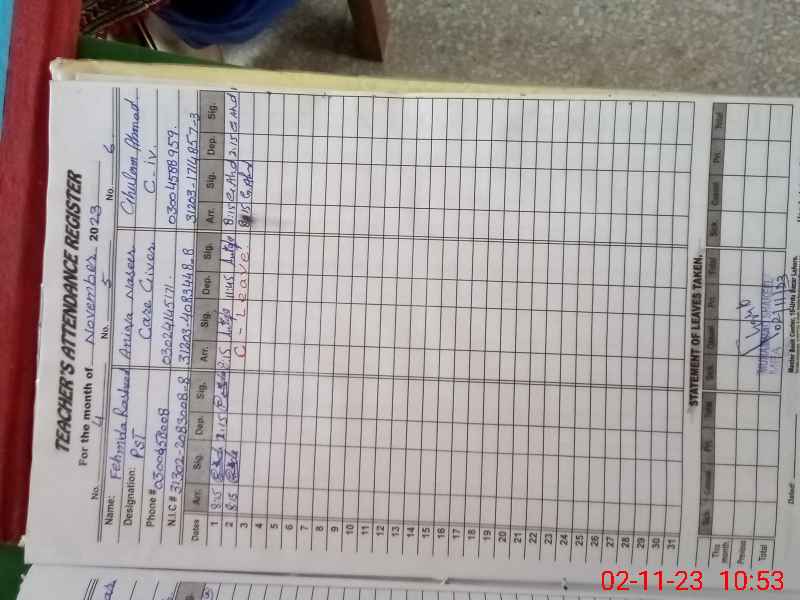 TEACHER'S ATTENDANCE REGISTER
For the month of November 2023
No. 4 No. 5 No. 6
Name: Fehmida Rasheed Aniqa Naseer Ghulam Ahmad
Designation: PST Care Giver C-iv.
Phone # 0300458008 03024145171. 03004588959.
N.I.C # 31302-2083008-8 31203-4083448-8 31203-1714857-3
Dates Arr. Sig. Dep. Sig. Arr. Sig. Dep. Sig. Arr. Sig. Dep. Sig.
1 8:15 2:15 8:15 11:45 8:15 G.Ahd 2:15 G.Ahd
2 8:15 C - Leave 8:15 G.Ahd
3
4
5
6
7
8
9
10
11
12
13
14
15
16
17
18
19
20
21
22
23
24
25
26
27
28
29
30
31
STATEMENT OF LEAVES TAKEN.
Sick Casual Pri. Total Sick Casual Pri. Total Sick Casual Pri. Total
This month
Previous
Total
02/11/23
Dated:
02-11-23 10:53